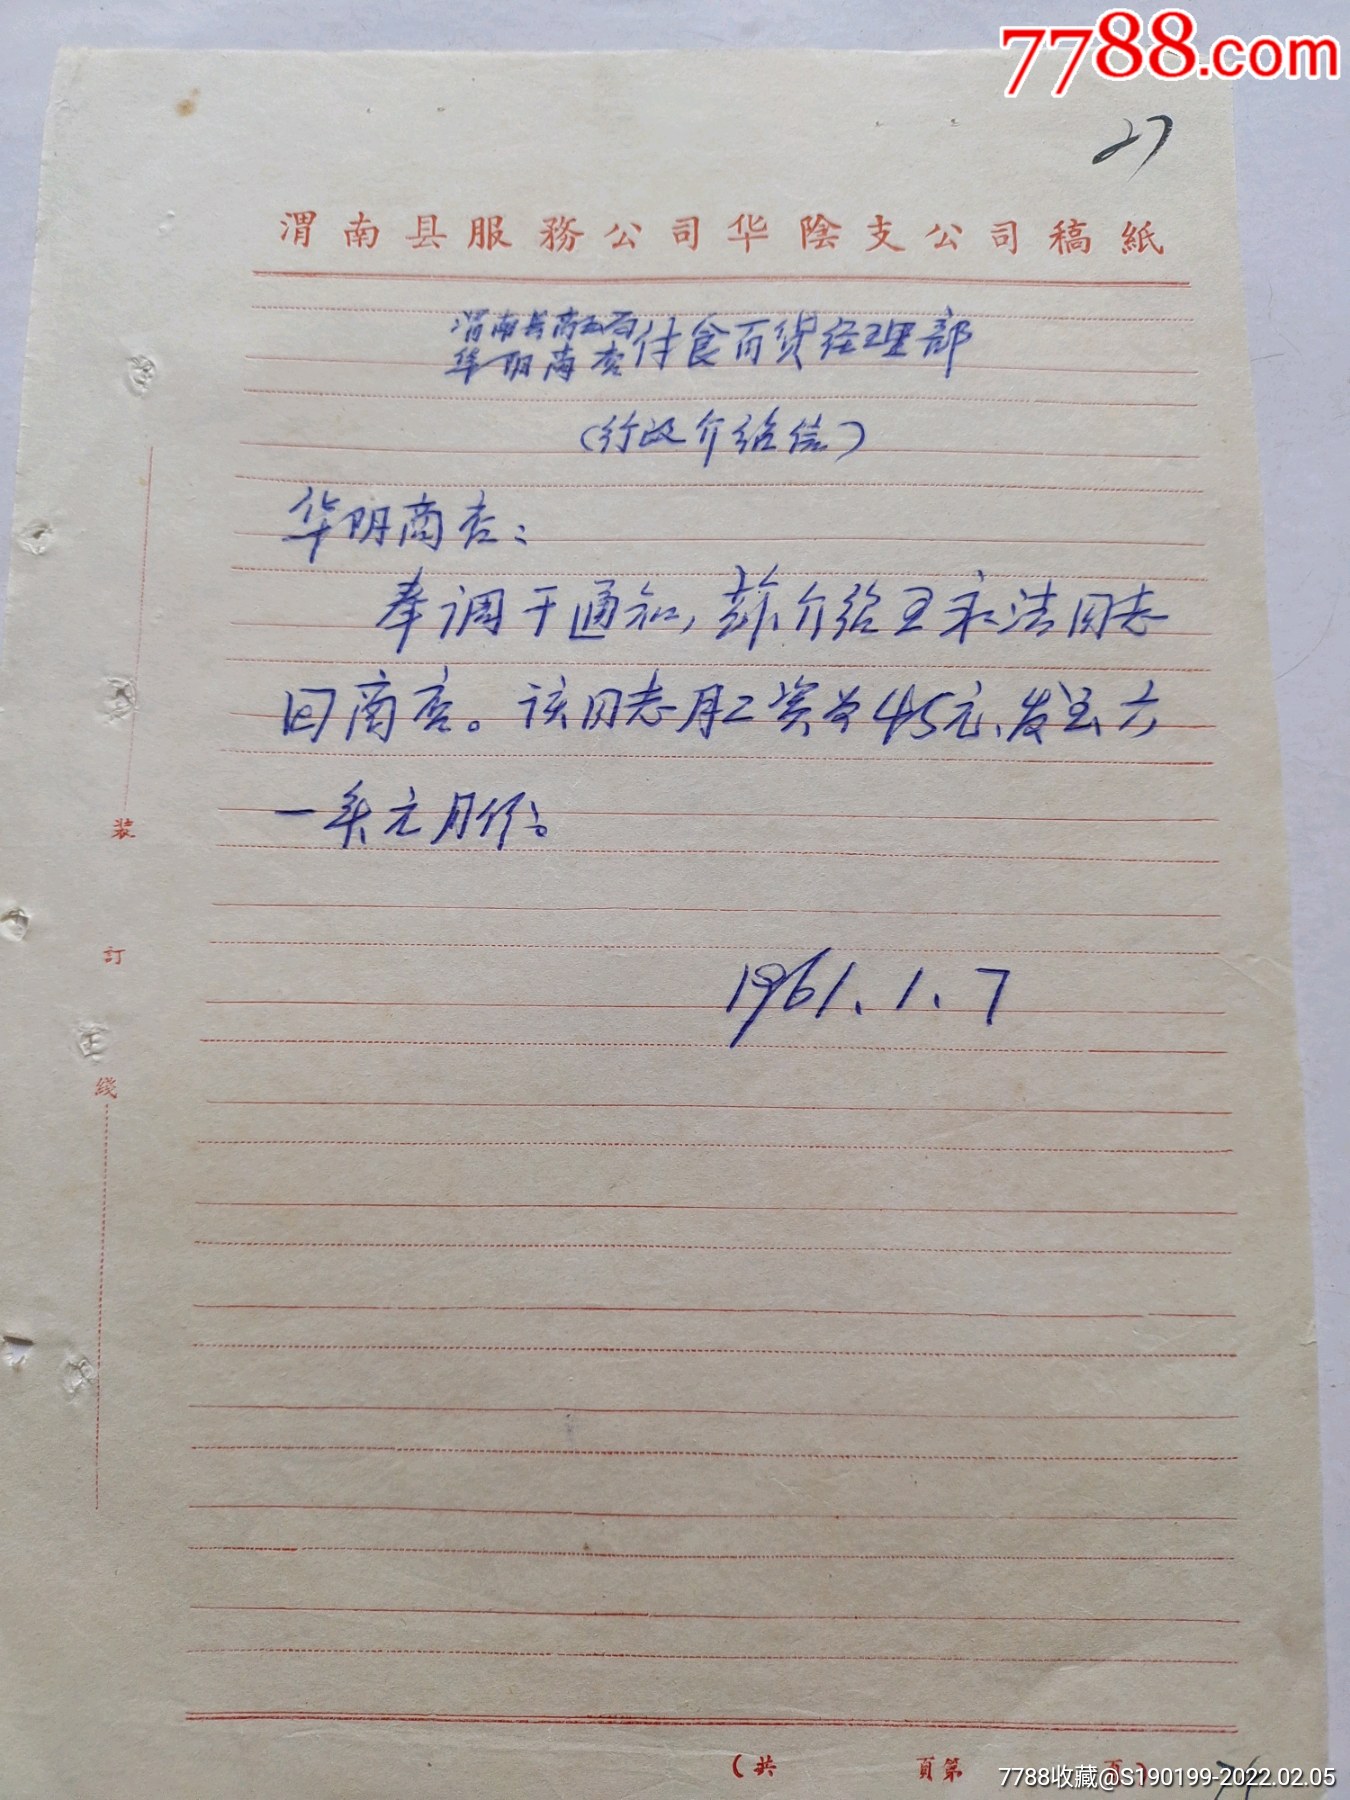 7788.com
27
渭南县服務公司华陰支公司稿紙
渭南县商业局
华阴商店付食百货经理部
(行政介绍信)
华阴商店：
奉调干通知，兹介绍王永洁同志
回商店。该同志月工资为45元、发至六
一年元月份。
1961.1.7
装
訂
綫
(共 頁第 頁)
7788收藏@S190199-2022.02.05